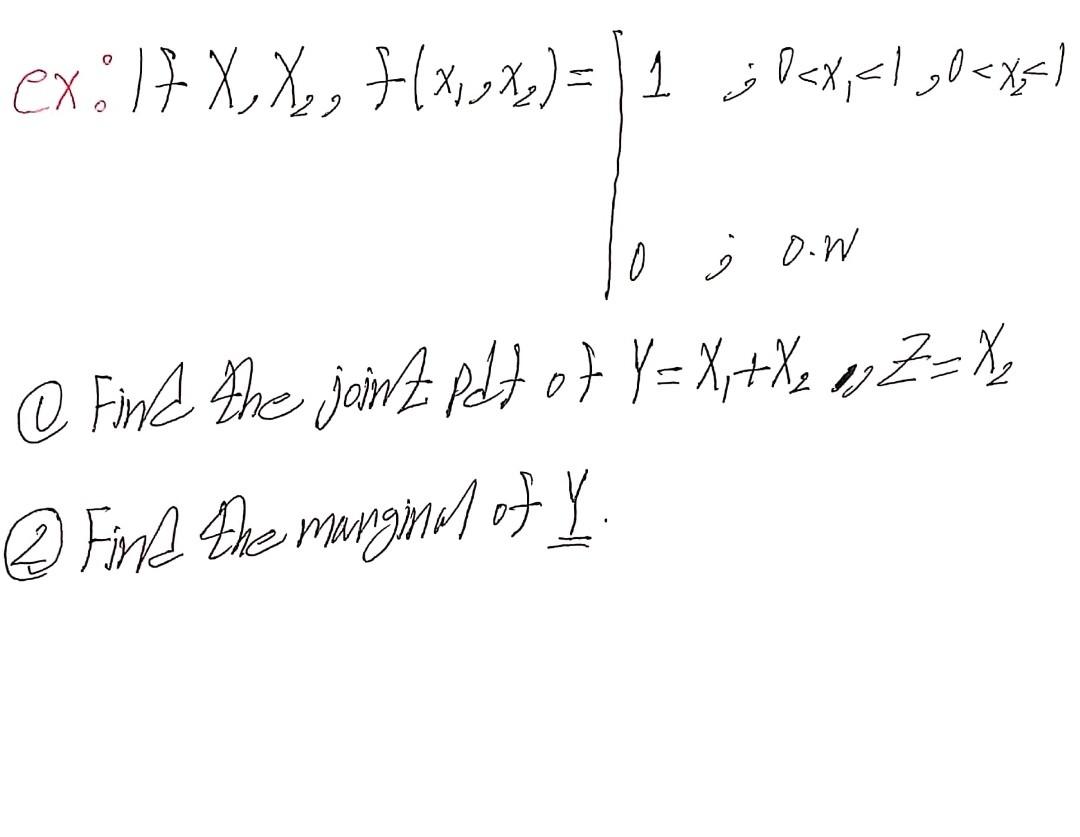 ex: If X, X₂, f(x₁,x₂) = 1 ; 0<x₁<1, 0<x₂<1
0 ; o.w
① Find the joint pdf of Y = X₁+X₂ ,, Z = X₂
② Find the marginal of Y.